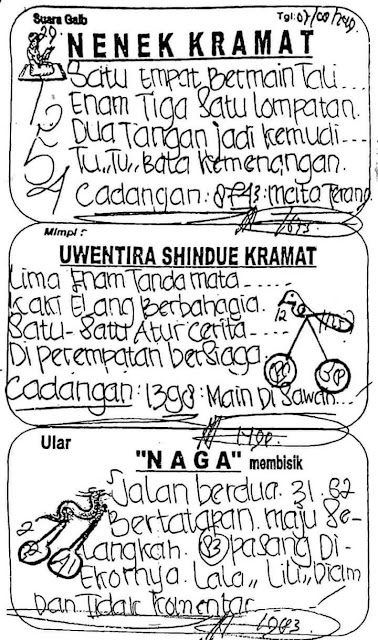 Suara Gaib
Tgl:
NENEK KRAMAT
Satu Empat Bermain Tali...
Enam Tiga Satu Lompatan.
Dua Tangan jadi kemudi...
Tu,,Tu,, Bata Kemenangan.
Cadangan: Maita Terang
Mimpi :
UWENTIRA SHINDUE KRAMAT
Lima Enam Tanda Mata.....
Kaki Elang Berbahagia.
Satu-Satu Atur Cerita.....
12
Di Perempatan bersiaga
Cadangan: 1398: Main Di Sawah...
Ular
"NAGA" membisik
Jalan berdua. 31. 82
Bertatapan. maju Se-
Langkah. 83 pasang Di-
Ekornya. Lala,, Lili,, Diam
Dan Tidak Komentar